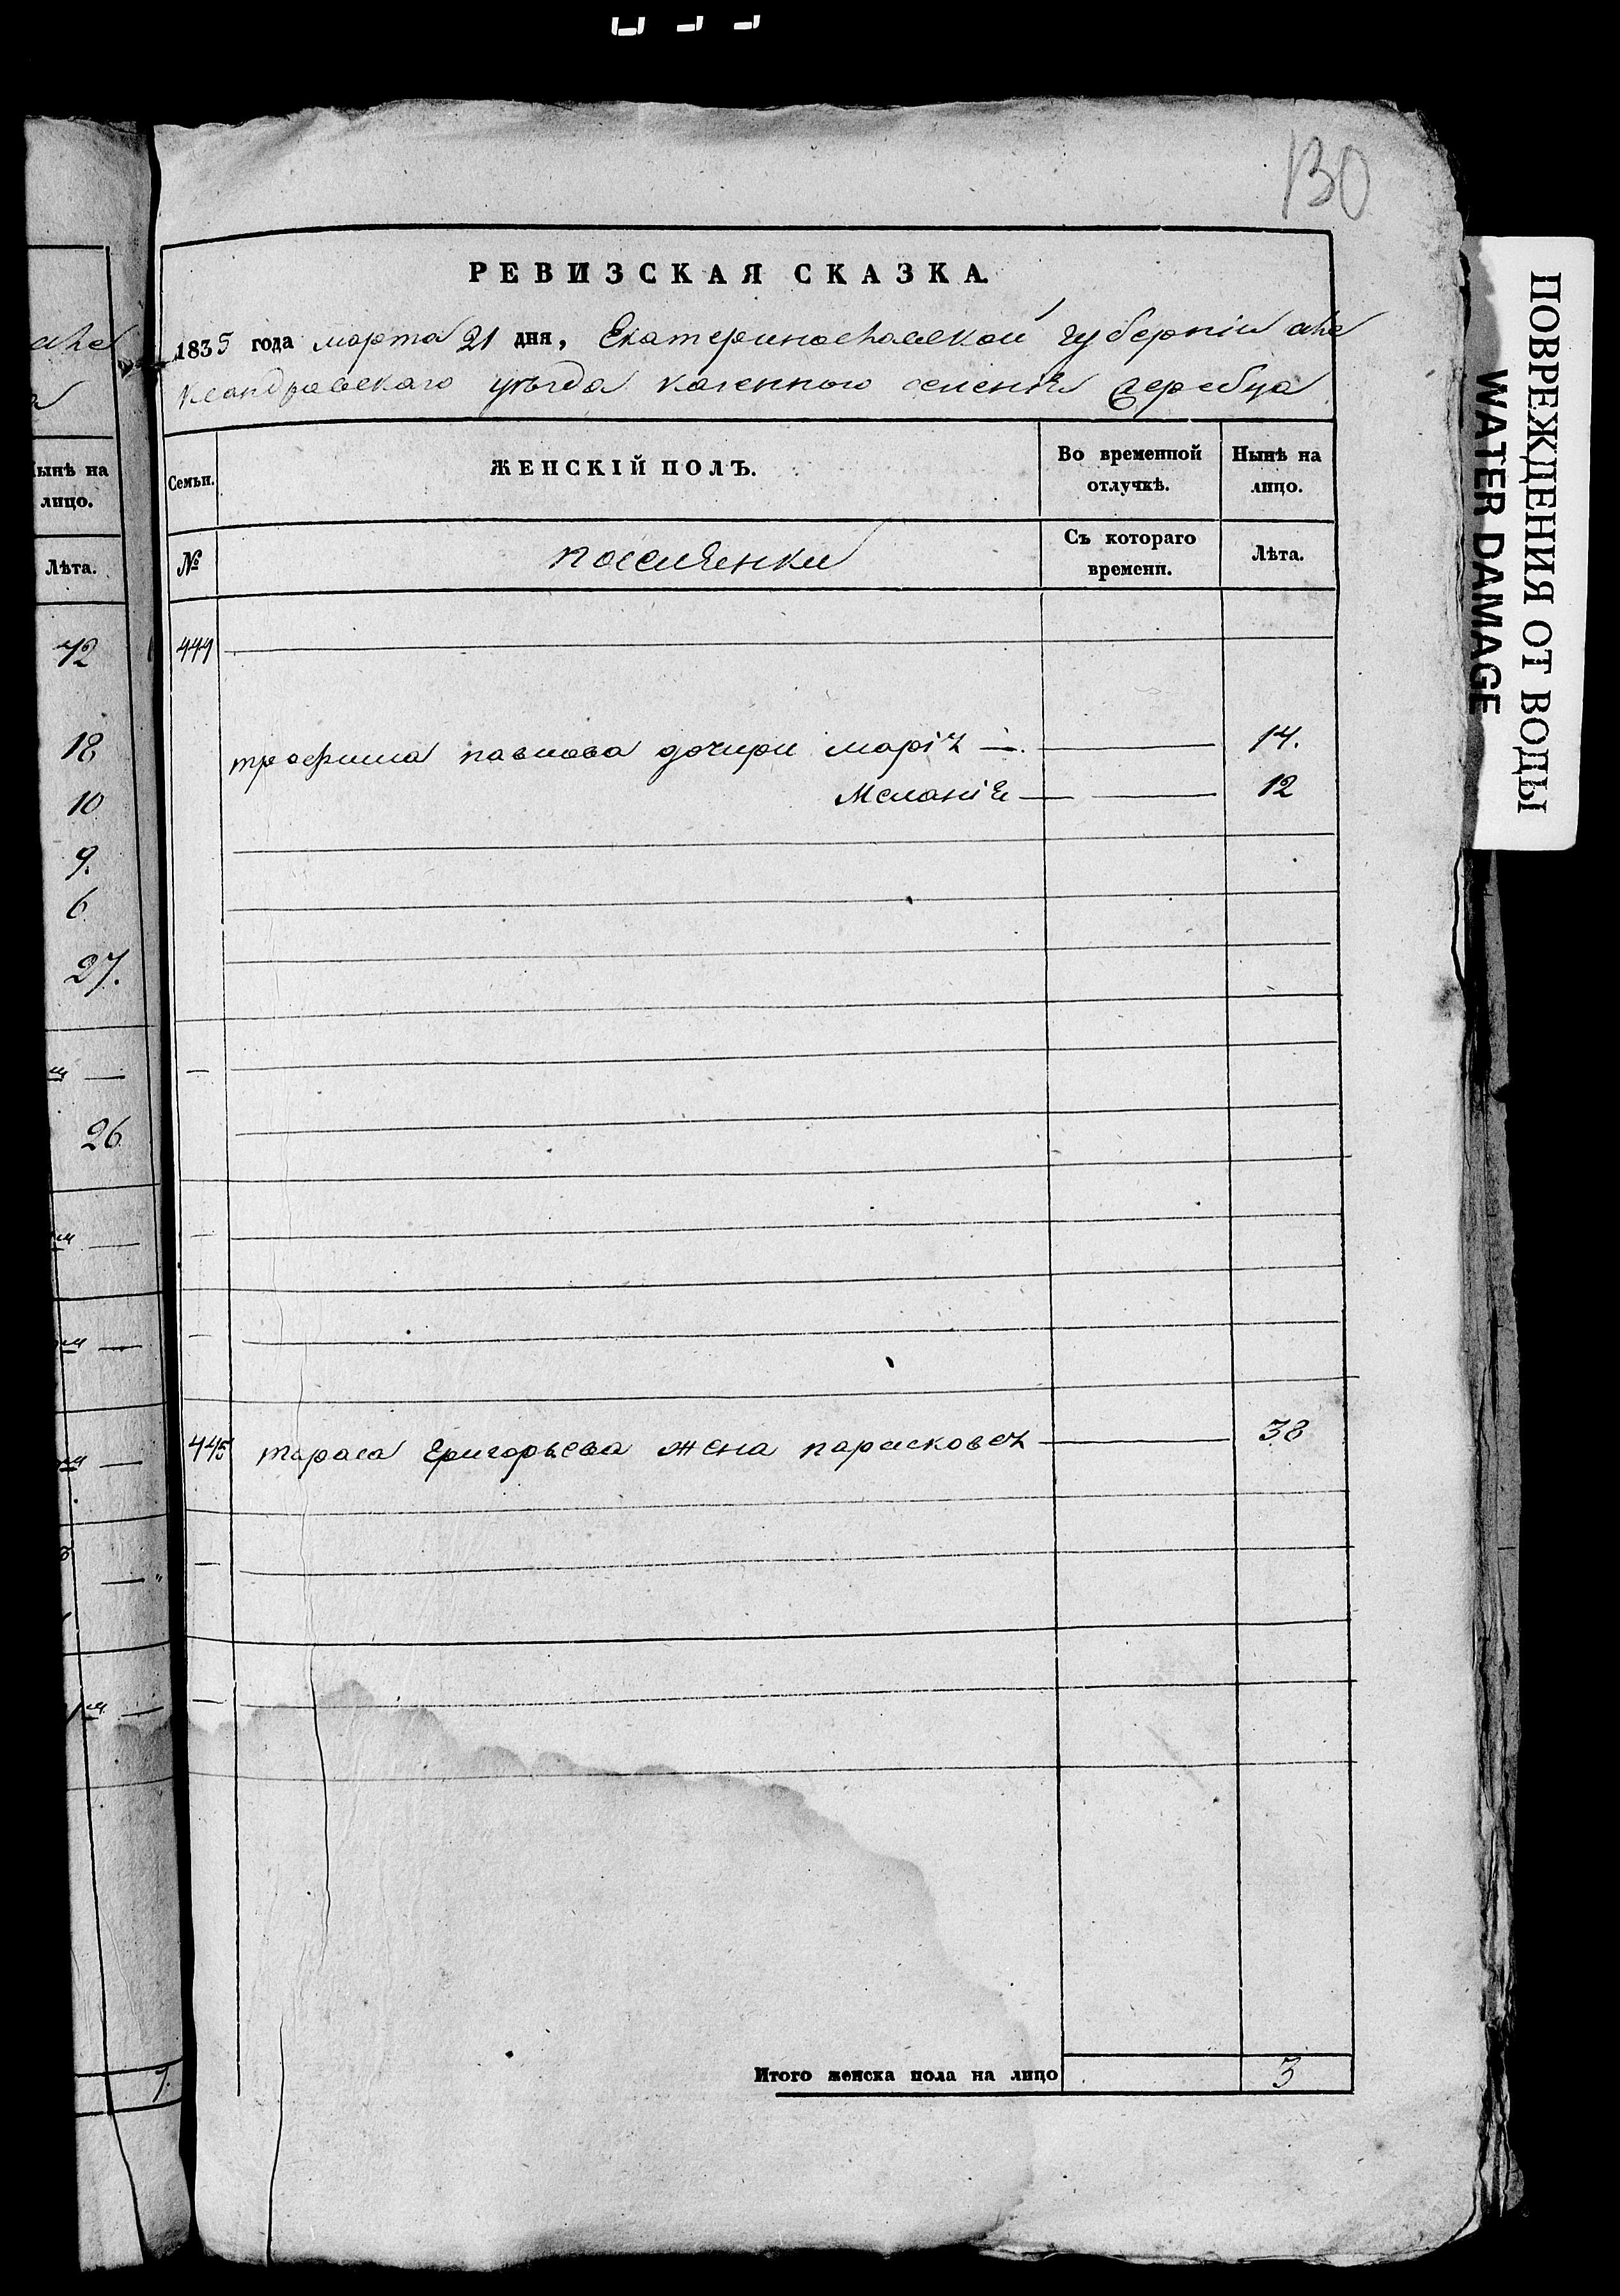 130
РЕВИЗСКАЯ СКАЗКА.
1835 года марта 21 дня, Екатеринославской губерніи але
ксандровскаго уѣзда казенного селенія жеребца
Семьи.
ЖЕНСКІЙ ПОЛЪ.
Во временной отлучкѣ.
Нынѣ на лицо.
№
поселянки
Съ котораго времени.
Лѣта.
444
трофима павлова дочери марія 14.
Меланія 12
445 тараса Григорьева жена парасковея 38
Итого женска пола на лицо 3
ынѣ на
лицо.
Лѣта.
42
18
10
9.
6
27.
26
7.
ПОВРЕЖДЕНИЯ ОТ ВОДЫ
WATER DAMAGE